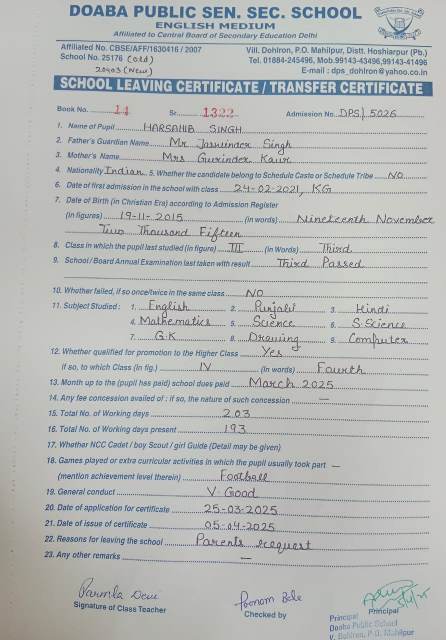 DOABA PUBLIC SEN. SEC. SCHOOL
ENGLISH MEDIUM
Affiliated to Central Board of Secondary Education Delhi
Affiliated No. CBSE/AFF/1630416 / 2007
Vill. Dohlron, P.O. Mahilpur, Distt. Hoshiarpur (Pb.)
School No. 25176 (old)
Tel. 01884-245496, Mob.99143-43496,99143-41496
20403 (New)
E-mail : dps_dohlron@yahoo.co.in
SCHOOL LEAVING CERTIFICATE / TRANSFER CERTIFICATE
Book No. 14 Sr. 1322 Admission No. DPS/5026
1. Name of Pupil HARSAHIB SINGH
2. Father's Guardian Name Mr Jaswinder Singh
3. Mother's Name Mrs Gurinder Kaur
4. Nationality Indian 5. Whether the candidate belong to Schedule Caste or Schedule Tribe NO
6. Date of first admission in the school with class 24-02-2021, KG
7. Date of Birth (in Christian Era) according to Admission Register
(in figures) 19-11-2015 (in words) Nineteenth November
Two Thousand Fifteen
8. Class in which the pupil last studied (in figure) III (in Words) Third
9. School / Board Annual Examination last taken with result Third Passed
10. Whether failed, if so once/twice in the same class NO
11. Subject Studied : 1. English 2. Punjabi 3. Hindi
4. Mathematics 5. Science 6. S.Science
7. G.K 8. Drawing 9. Computer
12. Whether qualified for promotion to the Higher Class Yes
If so, to which Class (in fig.) IV (in words) Fourth
13. Month up to the (pupil has paid) school dues paid March 2025
14. Any fee concession availed of : if so, the nature of such concession —
15. Total No. of Working days 203
16. Total No. of Working days present 193
17. Whether NCC Cadet / boy Scout / girl Guide (Detail may be given)
18. Games played or extra curricular activities in which the pupil usually took part —
(mention achievement level therein) Football
19. General conduct V. Good
20. Date of application for certificate 25-03-2025
21. Date of issue of certificate 05-04-2025
22. Reasons for leaving the school Parents request
23. Any other remarks —
Parmla Devi
Poonam Bala
Signature of Class Teacher
Checked by
Principal
Principal
Doaba Public School
V. Dohlron, P.O. Mahilpur